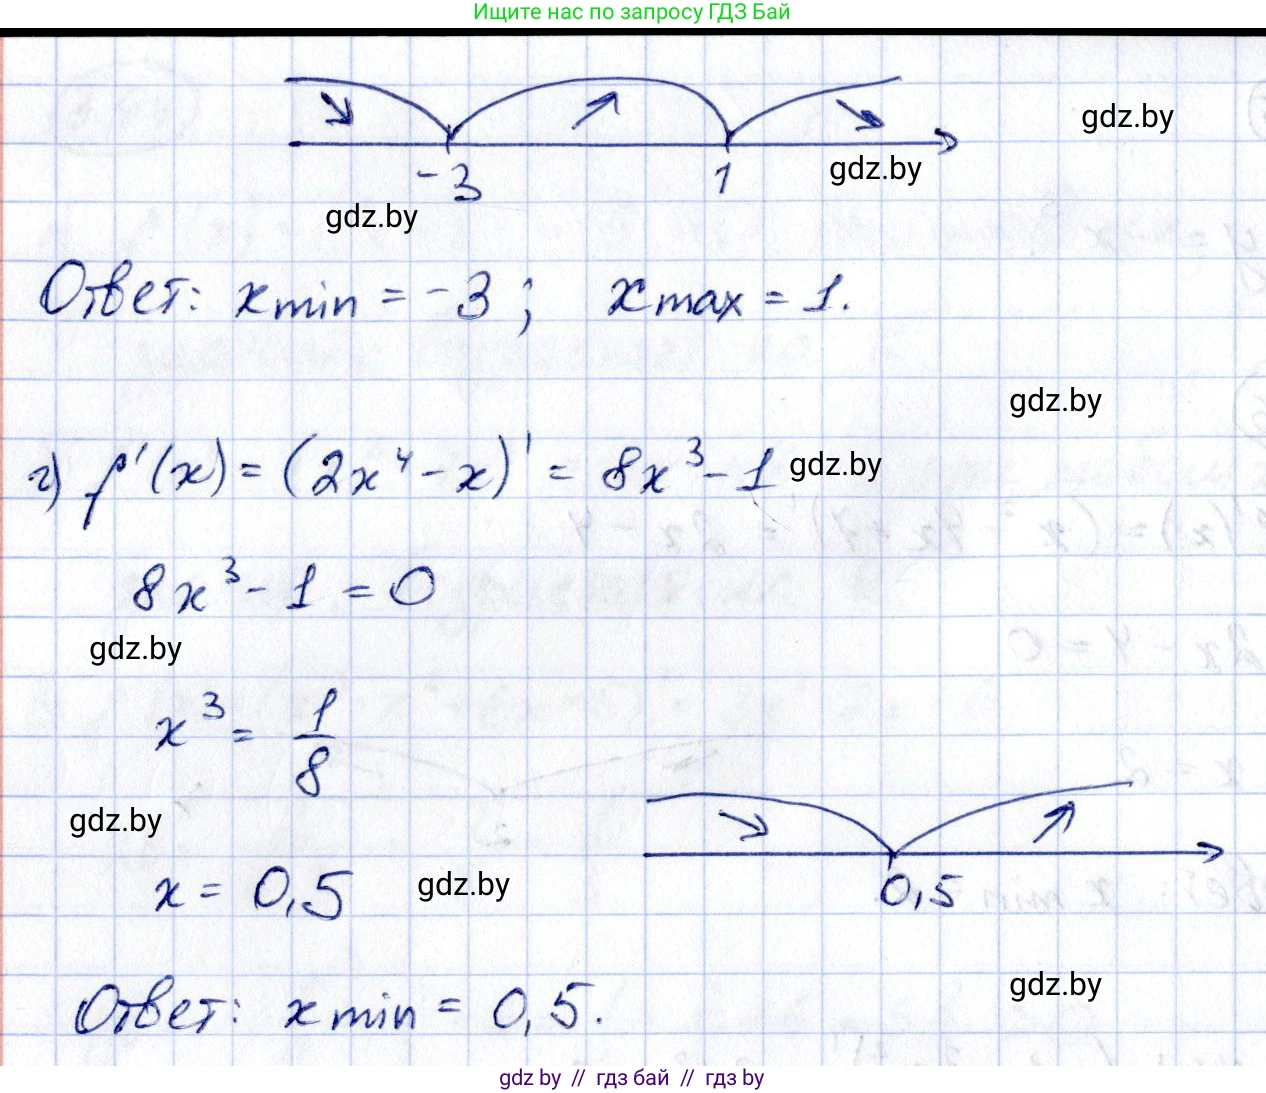 Ищите нас по запросу ГДЗ Бай
gdz.by
gdz.by
-3 1
gdz.by
Ответ: xmin = -3; xmax = 1.
gdz.by
г) f'(x) = (2x⁴ - x)' = 8x³ - 1
gdz.by
8x³ - 1 = 0
gdz.by
x³ = 1/8
gdz.by
x = 0,5
gdz.by
0,5
gdz.by
Ответ: xmin = 0,5.
gdz by // гдз бай // гдз by